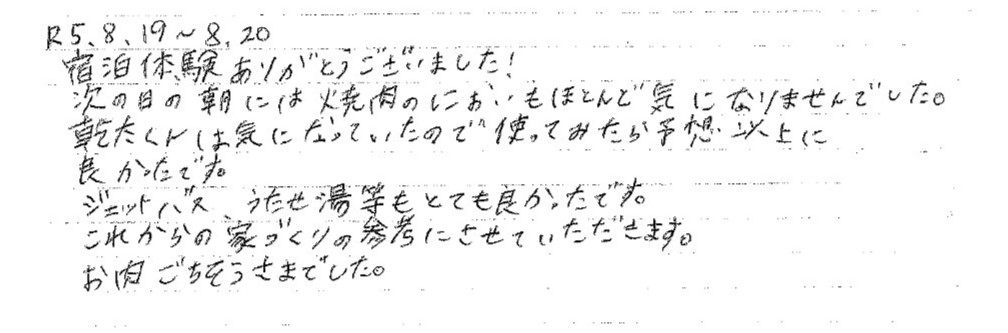 R5.8.19～8.20
宿泊体験ありがとうございました!
次の日の朝には焼肉のにおいもほとんど気になりませんでした。
乾太くんは気になっていたので使ってみたら予想以上に
良かったです。
ジェットバス、うたせ湯等もとても良かったです。
これからの家づくりの参考にさせていただきます。
お肉ごちそうさまでした。